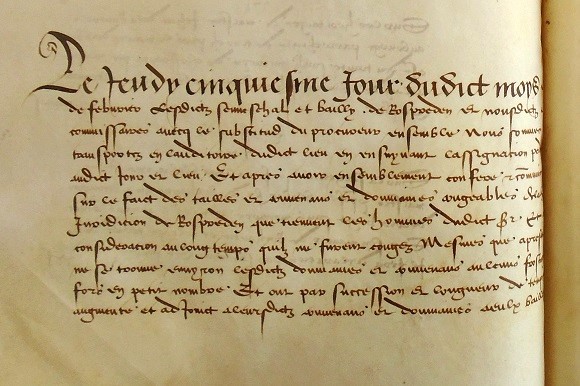 Le Jeudy cinquiesme Jour dudict moys
de febvrier Lesdictz senneschal et bailly de Rospreden et nousdictz
commissaires avecq le substitud du procureur ensemble Nous sommes
transportez en lauditoire dudict lieu en ensuyvant lassignation
audict Jour et lieu Et apres avoir ensemblement confere et
sur le faict des tailles et convenans et dommaines congeables de la
Jurisdicion de Rospreden que tiennent les hommes dudict Sr Et
consideracion au long temps quilz ne furent congez Mesmes que apres
ne se trouve environ lesdictz dommaines et convenans
fors en petit nombre Et ont par succession et longueur de temps
augmente et adjoinct a leursdictz convenans et dommaines